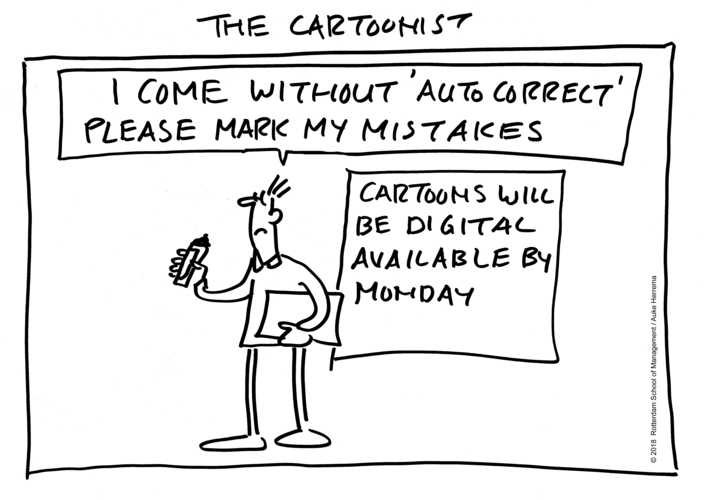 THE CARTOONIST
I COME WITHOUT 'AUTO CORRECT'
PLEASE MARK MY MISTAKES
CARTOONS WILL
BE DIGITAL
AVAILABLE BY
MONDAY
© 2018 Rotterdam School of Management / Auke Herrema